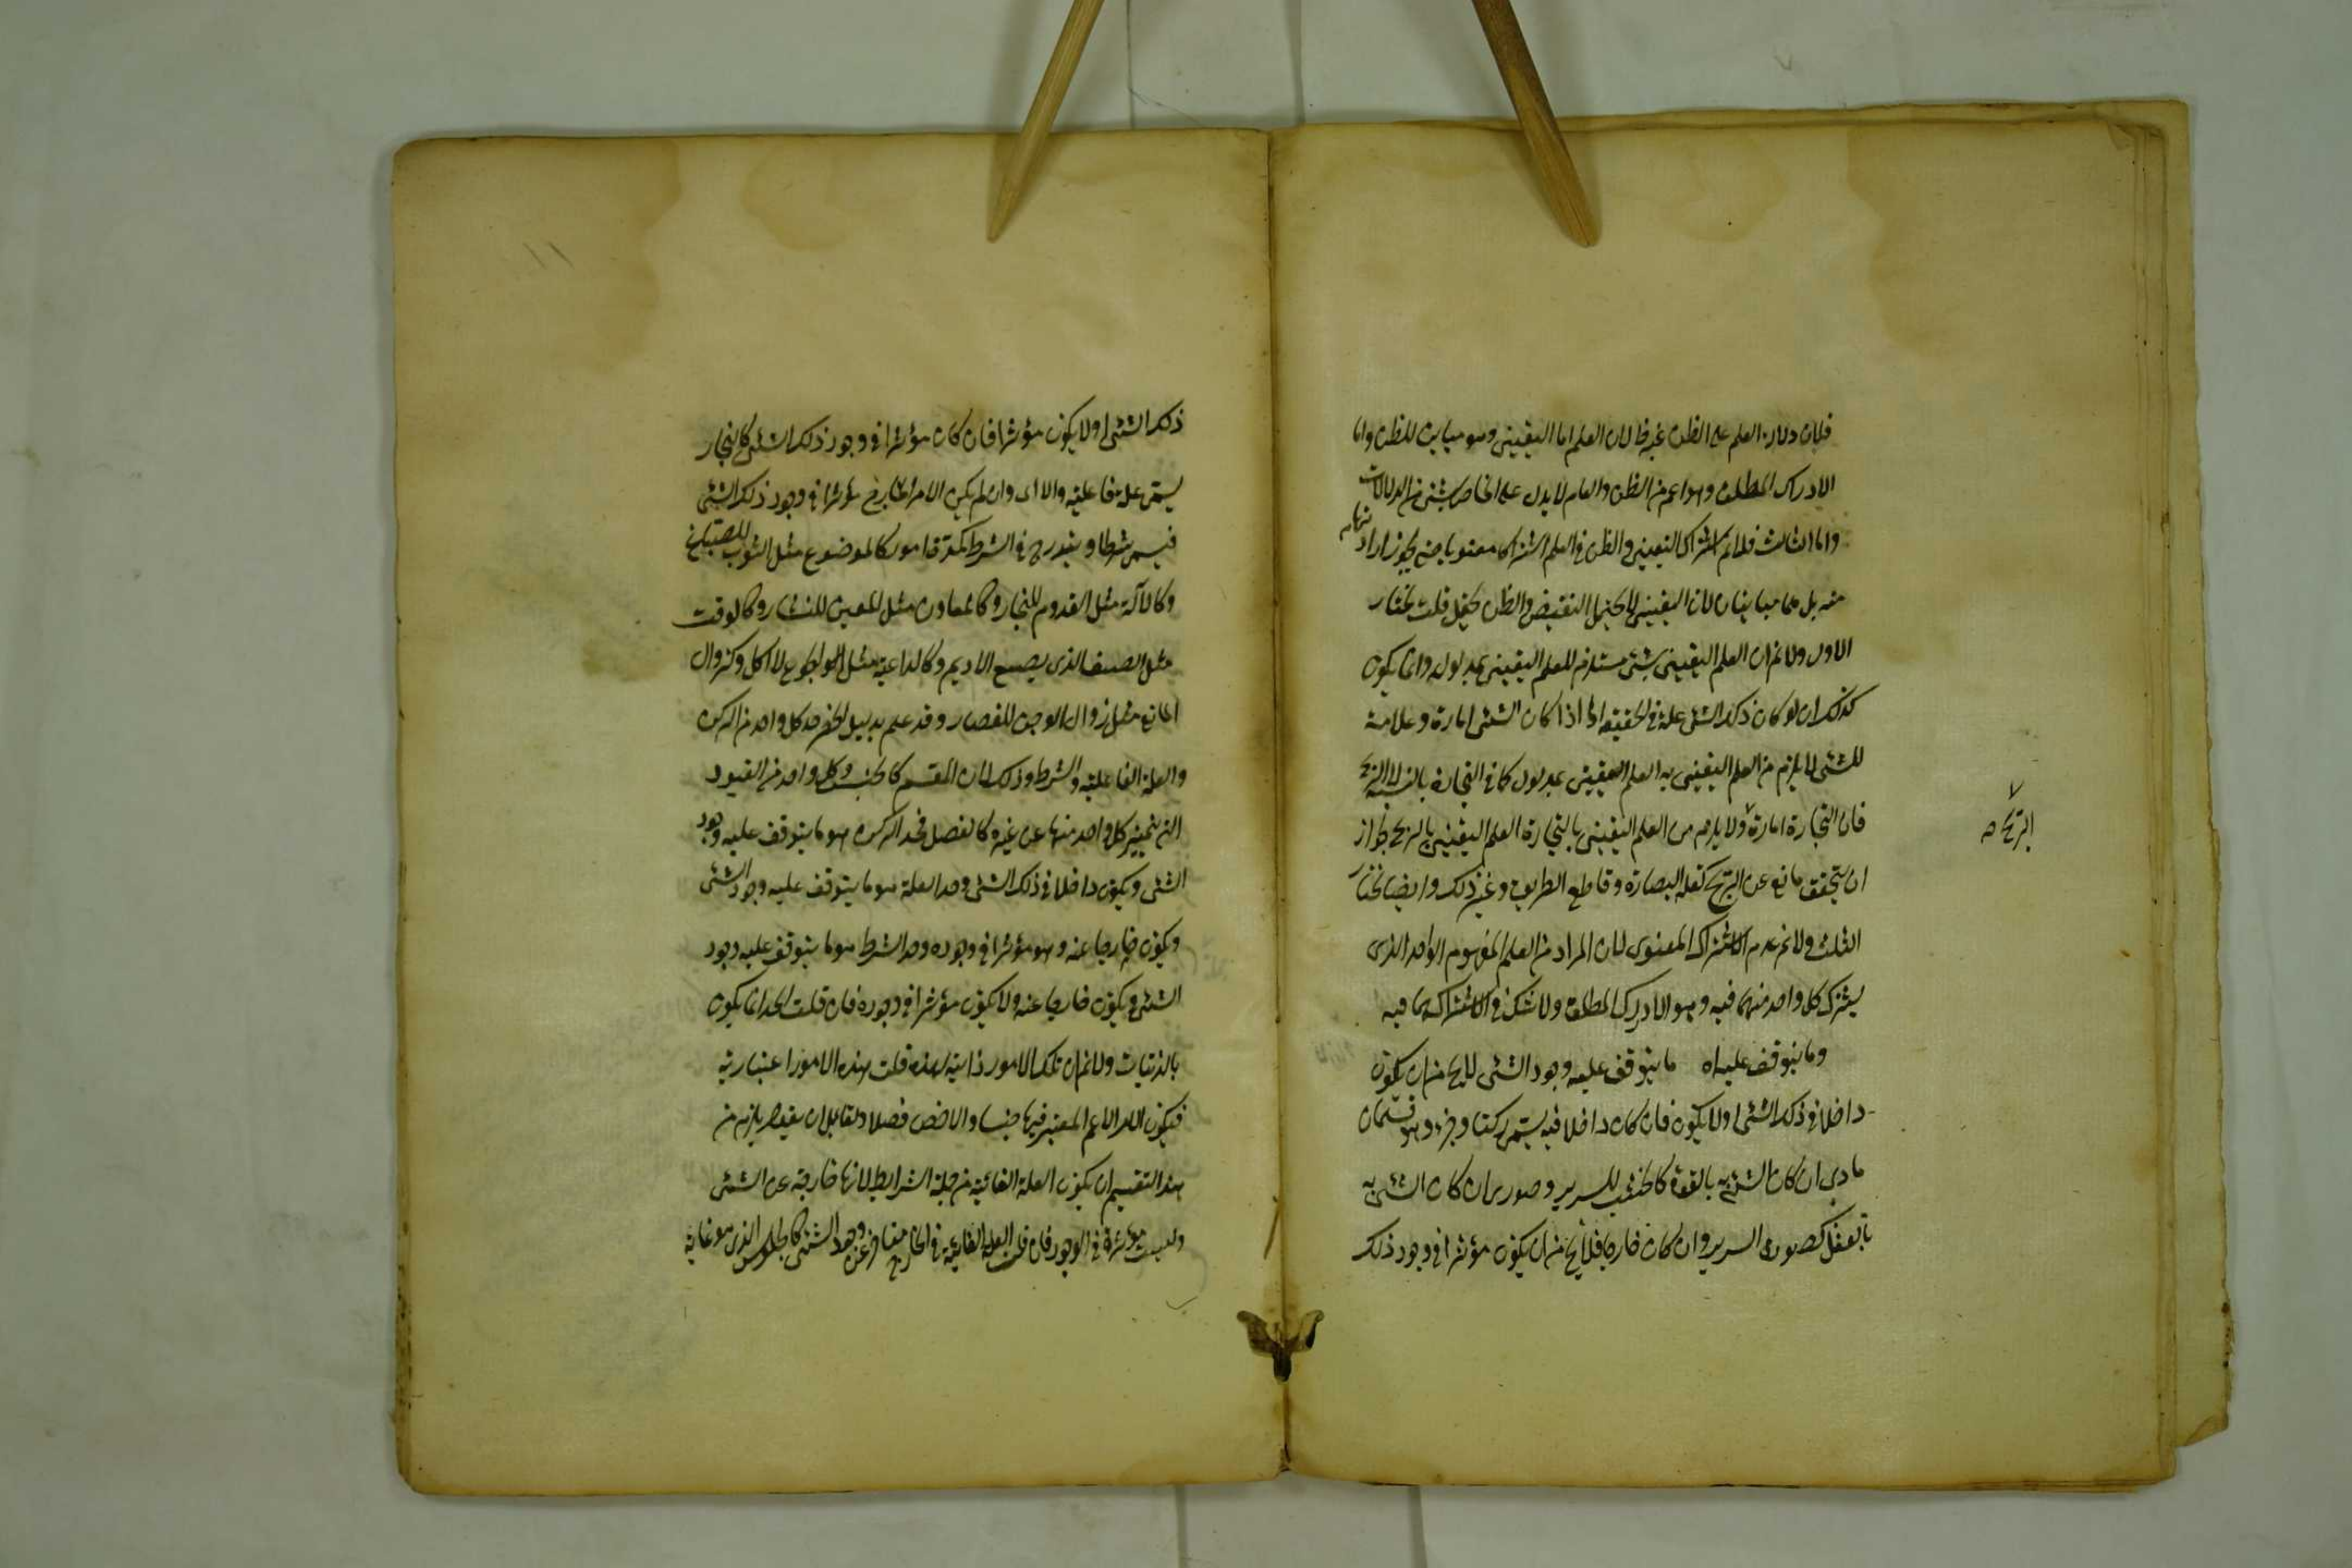 فلان دلالة العلم على الظن غير ظ لان العلم اما اليقينى وهو مباين للظن واما
الادراك المطلق وهو اعم من الظن والعام لا يدل على الخاص بشئ من الدلالات
واما الثالث فلانم اشتراك اليقينى والظن فى العلم اشتراكا معنويا حتى يجوز ارادتهما
منه بل هما مباينان لان اليقينى لا يحتمل النقيض والظن يحتمل قلت نختار
الاول ولانم ان العلم اليقينى بشئ مستلزم للعلم اليقينى بمدلوله وانما يكون
كذلك ان لو كان ذلك الشئ علة فى الحقيقة اما اذا كان الشئ امارة وعلامة
للشئ لا يلزم من العلم اليقينى به العلم اليقينى بمدلوله كما فى التجارة بالنسبة الى الربح
فان التجارة امارة ولا يلزم من العلم اليقينى بالتجارة العلم اليقينى بالربح لجواز
ان يتحقق مانع عن الربح كقلة البصارة وقاطع الطريق وغير ذلك وايضا نختار
الثالث ولانم عدم الاشتراك المعنوى لان المراد من العلم المفهوم الواحد الذى
يشترك كل واحد منهما فيه وهو الادراك المطلق ولا شك فى اشتراكهما فيه
وما يتوقف عليه اه ما يتوقف عليه وجود الشئ لا يخ من ان يكون
داخلا فى ذلك الشئ اولا يكون فان كان داخلا فيه يسمى ركنا وجزء وهو قسمان
مادى ان كان الشئ به بالقوة كالخشب للسرير وصورى ان كان الشئ به
بالفعل كصورة السرير وان كان خارجا فلا يخ من ان يكون مؤثرا فى وجود ذلك
الربح صح
ذلك الشئ اولا يكون مؤثرا فان كان مؤثرا فى وجود ذلك الشئ كالنجار
يسمى علة فاعلية والا اى وان لم يكن الامر الخارج مؤثرا فى وجود ذلك الشئ
فيسمى شرطا ويندرج فى الشرط امور كالموضوع مثل الثوب للصباغ
وكالآلة مثل القدوم للنجار وكالمعاون مثل المعين للنشار وكالوقت
مثل الصيف الذى يصبغ الاديم وكالداعية مثل الجوع للاكل وكزوال
المانع مثل زوال الدجن للقصار وقد علم بدليل الحصر حد كل واحد من الركن
والعلة الفاعلية والشرط وذلك لان المقسم كالجنس وكل واحد من القيود
التى يتميز كل واحد منها عن غيره كالفصل فحد الركن هو ما يتوقف عليه وجود
الشئ ويكون داخلا فى ذلك الشئ وحد العلة هو ما يتوقف عليه وجود الشئ
ويكون خارجا عنه وهو مؤثر فى وجوده وحد الشرط هو ما يتوقف عليه وجود
الشئ ويكون خارجا عنه ولا يكون مؤثرا فى وجوده فان قلت الحد انما يكون
بالذاتيات ولانم ان تلك الامور ذاتية لهذه قلت هذه الامور اعتبارية
فيكون الامر الاعم المعتبر فيها جنسا والاخص فصلا ولقائل ان يقول يلزم من
هذا التقسيم ان يكون العلة الغائية من جملة الشرايط لانها خارجة عن الشئ
وليست مؤثرة فى الوجود فان قلت العلة الغائية فى الخارج متأخرة عن وجود الشئ كالجلوس الذى هو غاية